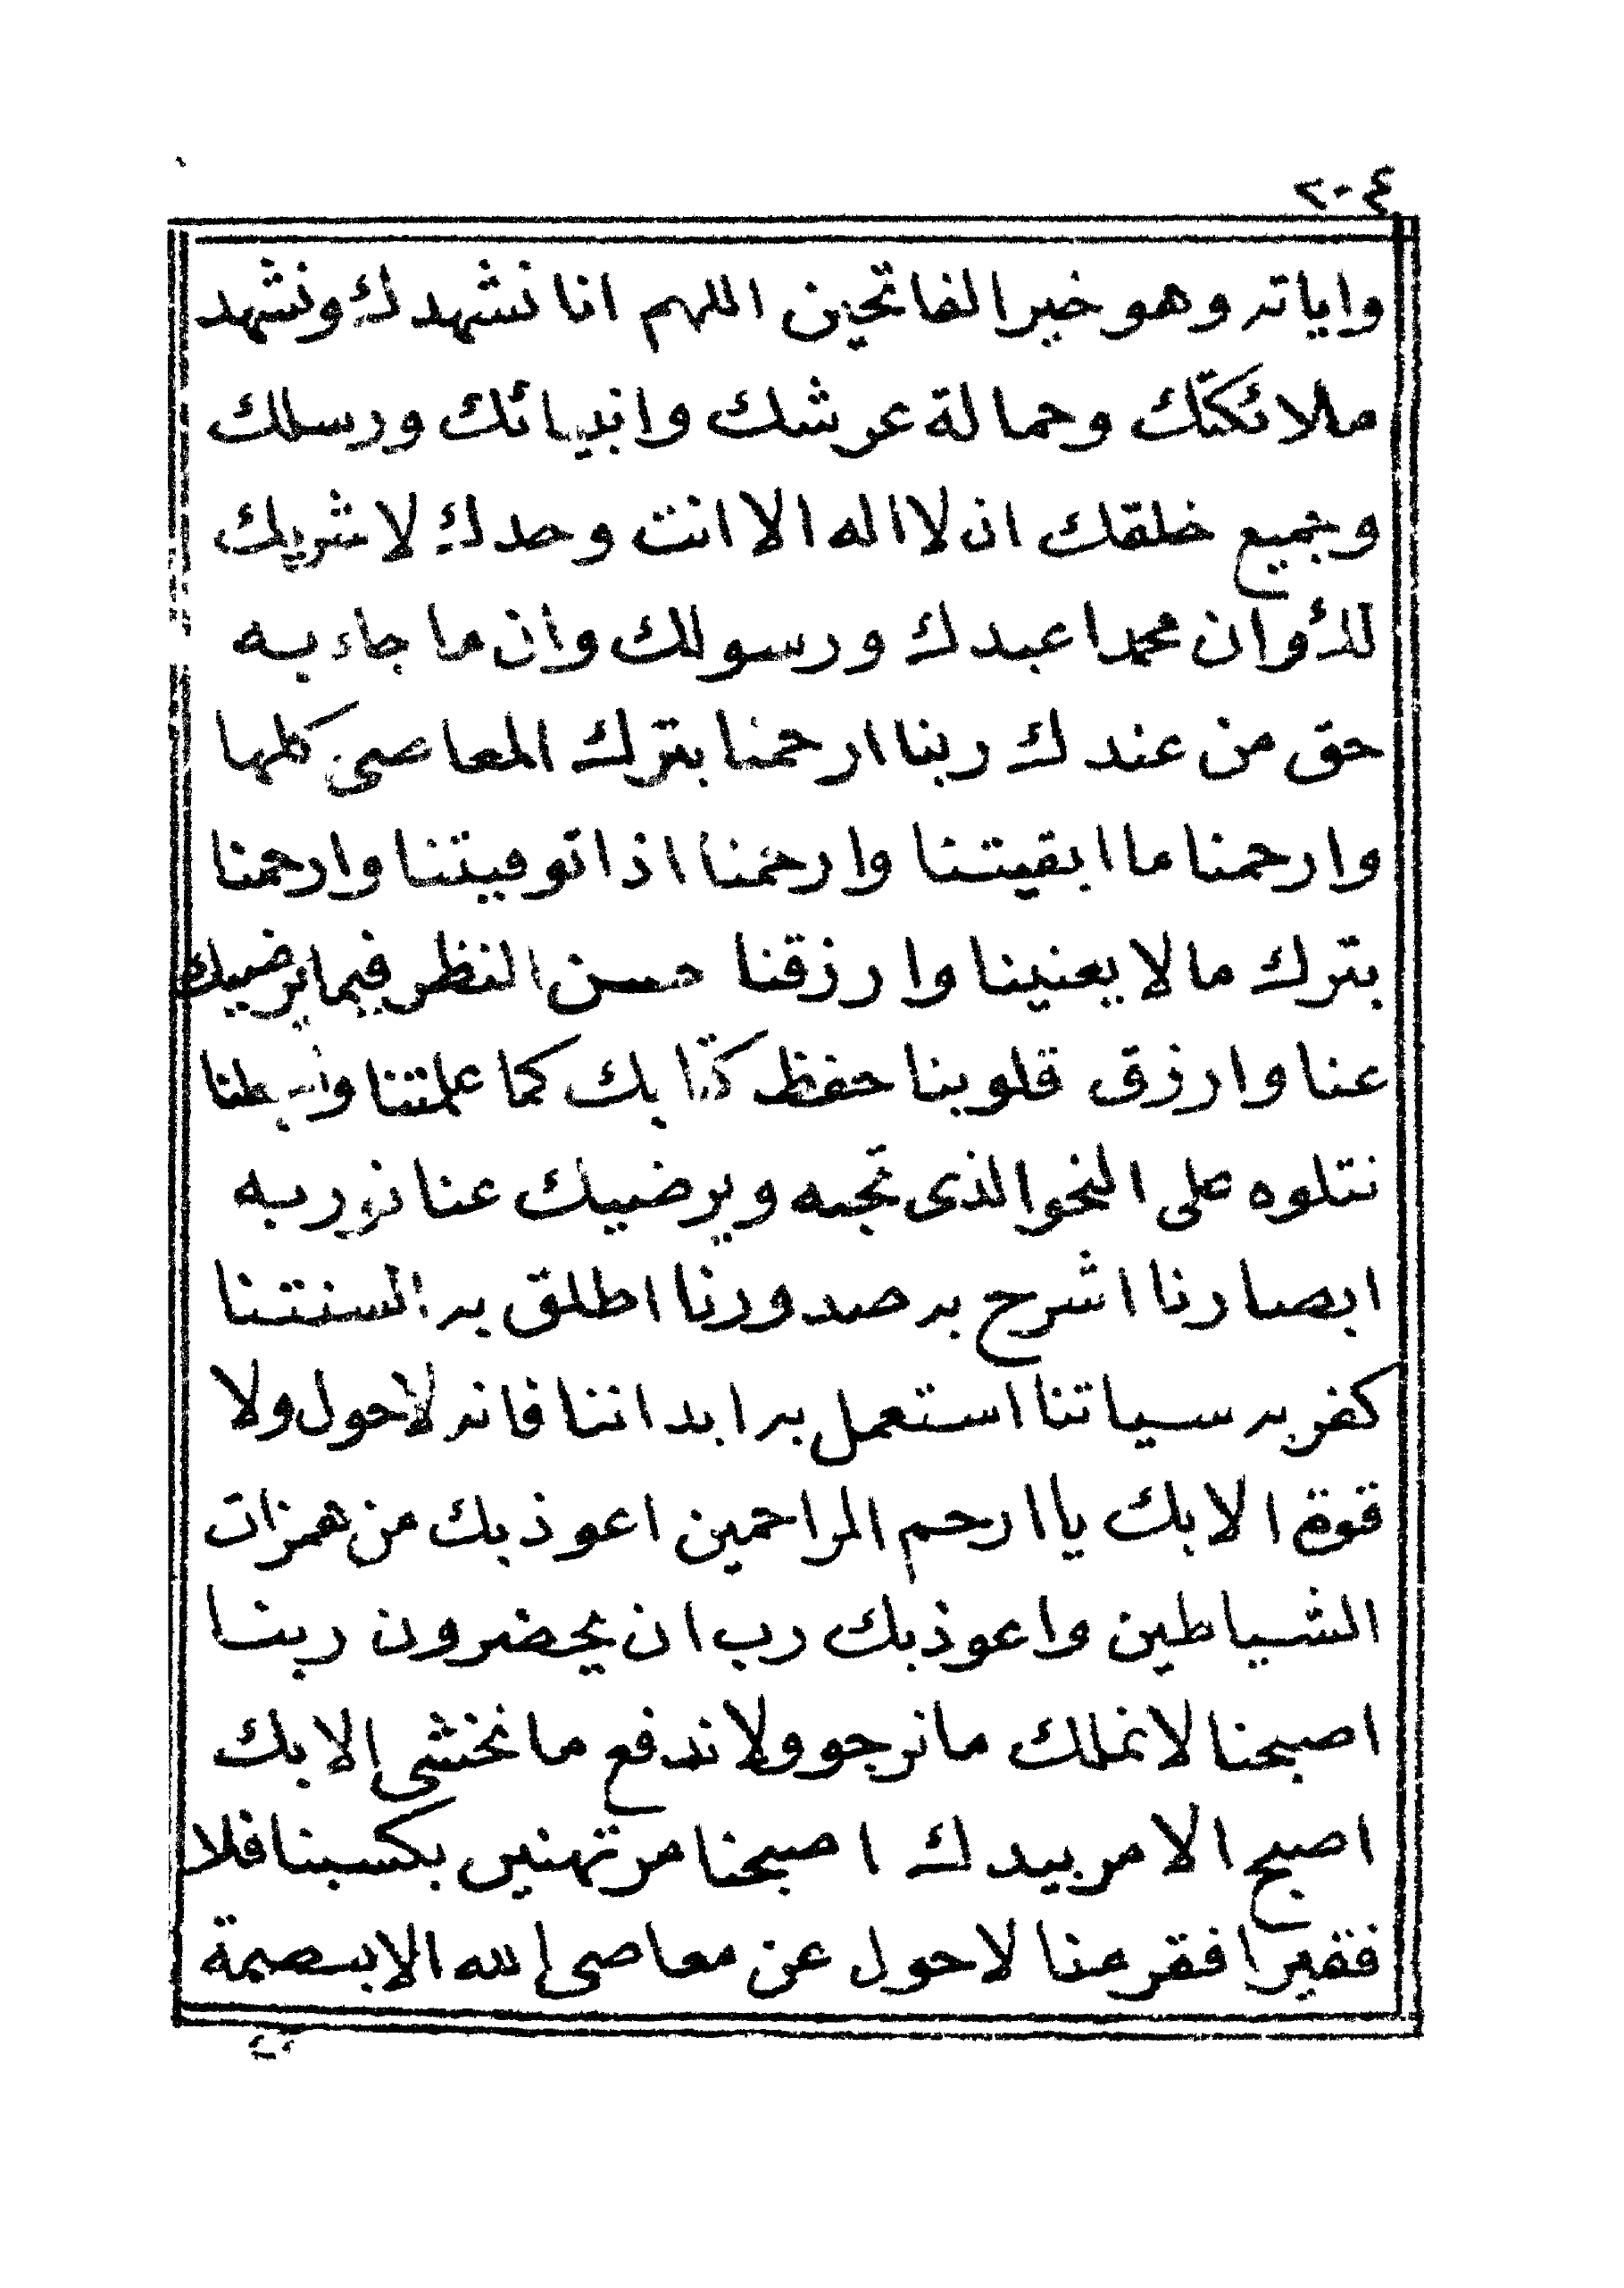 ٢٠٤
واياته وهو خير الفاتحين اللهم انا نشهدك ونشهد
ملائكتك وحمالة عرشك وانبيائك ورسلك
وجميع خلقك ان لا اله الا انت وحدك لا شريك
لك وان محمدا عبدك ورسولك وان ما جاء به
حق من عندك ربنا ارحمنا بترك المعاصى كلها
وارحمنا ما ابقيتنا وارحمنا اذا توفيتنا وارحمنا
بترك ما لا يعنينا وارزقنا حسن النظر فيما يرضيك
عنا وارزق قلوبنا حفظ كتابك كما علمتنا وبسطنا
نتلوه على النحو الذى تحبه ويرضيك عنا نور به
ابصارنا اشرح به صدورنا اطلق به السنتنا
كفر به سياتنا استعمل به ابداننا فانه لا حول ولا
قوة الا بك يا ارحم الراحمين اعوذ بك من همزات
الشياطين واعوذ بك رب ان يحضرون ربنا
اصبحنا لا نملك ما نرجو ولا ندفع ما نخشى الا بك
اصبح الامر بيدك اصبحنا مرتهنين بكسبنا فلا
فقيرا فقر منا لا حول عن معاصى الله الا بعصمة